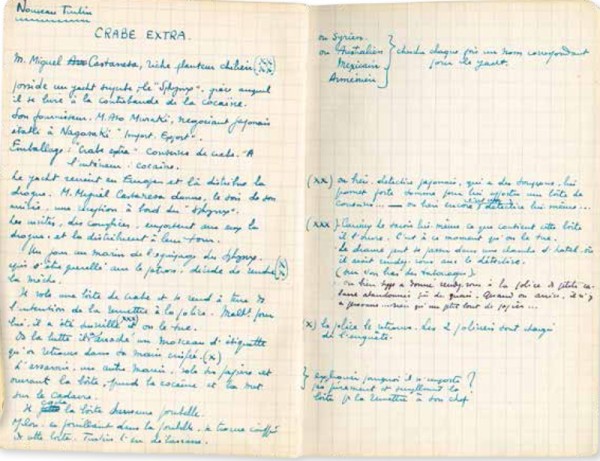 Nouveau Tintin
CRABE EXTRA.
M. Miguel Castaresa, riche planteur chilien (xx xx)
possède un yacht superbe, le "Sphynx", grâce auquel
il se livre à la contrebande de la cocaïne.
Son fournisseur. M. Aso Muraki, négociant japonais
établi à Nagasaki "Import. Export".
Emballage: "Crabe extra" conserves de crabe. A
l'intérieur: cocaïne.
Le yacht revient en Europe et là distribue la
drogue. M. Miguel Castaresa donne, le soir de son
arrivée, une réception à bord du "Sphynx".
Les invités, des complices, emportent avec eux la
drogue, et la distribuent à leur tour.
Un jour un marin de l'équipage du Sphynx,
qui s'était querellé avec le patron, décide de vendre (x x)
la mèche.
Il vole une boîte de crabe et se rend à terre à
l'intention de la remettre à la police. Malh. pour
lui, il a été surveillé (xxx) et on le tue.
De la lutte il a arraché un morceau d'étiquette
qu'on retrouve dans sa main crispée. (x)
L'assassin, un autre marin, vole les papiers et
ouvrant la boîte, prend la cocaïne et la met
sur le cadavre.
Il cache la boîte dans une poubelle.
Milou, en fouillant dans la poubelle, a trouvé
cette boîte. Tintin l'en débarrasse.
ou Syrien
ou Australien } cherche chaque fois un nom correspondant
Mexicain pour le yacht.
Arménien
(xx) ou bien: détective japonais, qui a des soupçons. lui
promet forte somme pour lui apporter une boîte de
conserves... — ou bien encore, détective lui-même...
(xxx) Curieux de savoir lui-même ce que contient cette boîte
il l'ouvre. C'est à ce moment qu'on le tue.
Le drame peut se passer dans une chambre d'hôtel où
il avait rendez-vous avec le détective.
(ou son bar des tabacs)
ou bien type a donné rendez-vous à la police ds petite ca-
bane abandonnée près du quai. Quand on arrive, il n'y
a personne — rien qu'un petit bout de papier...
(x) la police le retrouve. Les 2 policiers sont chargés
de l'enquête.
} expliquer pourquoi il n'emporte ?
pas purement et simplement la
boîte pr la remettre à son chef